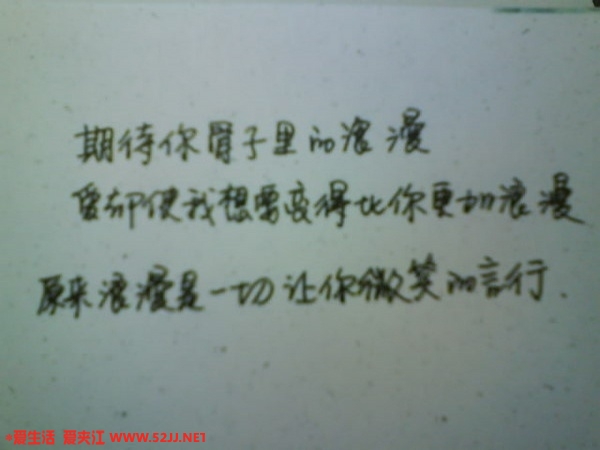 期待你骨子里的浪漫
爱却使我想要变得比你更加浪漫
原来浪漫是一切让你微笑的言行.
*爱生活 爱夹江 WWW.52JJ.NET